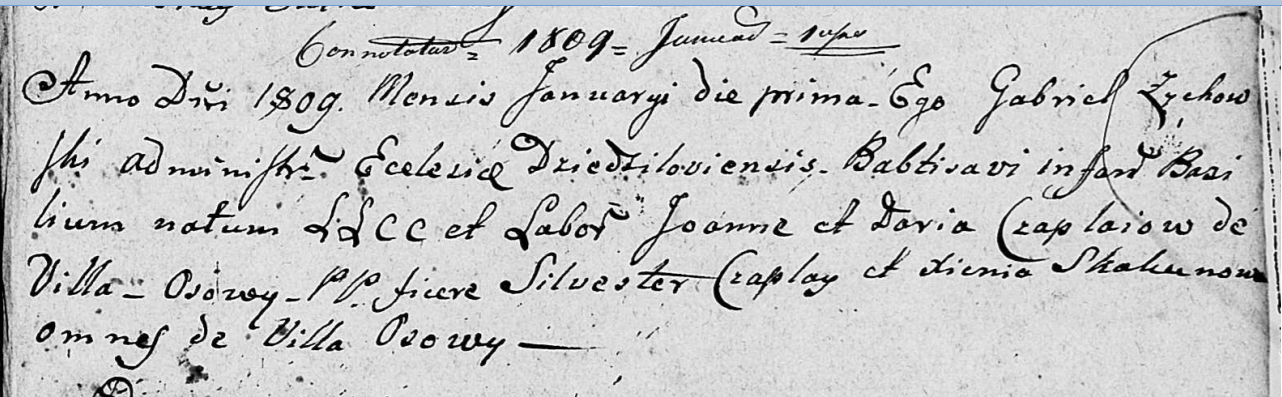 Connotatur 1809 = Januar = 1ma
Anno Dni 1809. Mensis Januaryi die prima - Ego Gabriel Zychow
ski administr Ecclesiæ Dziedziloviensis - Babtisavi infant Basi
lium natum LLCC et Labor Joanne et Daria Czaplaiow de
Villa - Osowey - PP. ficere Silvester Czaplay et Xienia Skakunowa
omnes de Villa Osowy —